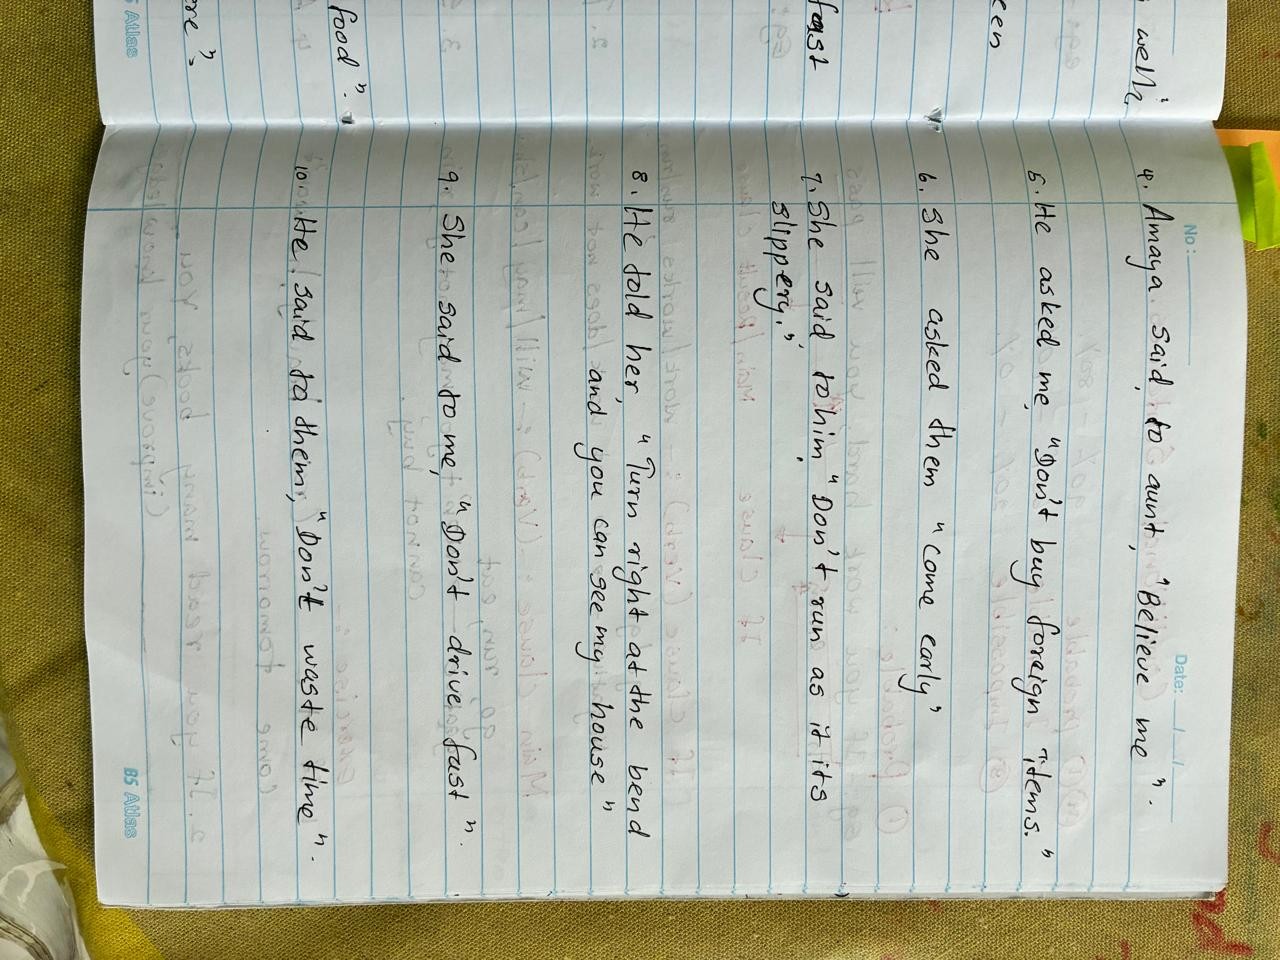 well",
een
fast
food".
ere".
B5 Atlas
No:
Date:
4. Amaya said, to aunt, "Believe me".
5. He asked me, "Don't buy foreign items."
6. She asked them "come early"
7. She said to him "Don't run as it its
slippery."
8. He told her, "Turn right at the bend
and you can see my house"
9. She said to me, "Don't drive fast".
10. He said to them, "Don't waste time".
B5 Atlas